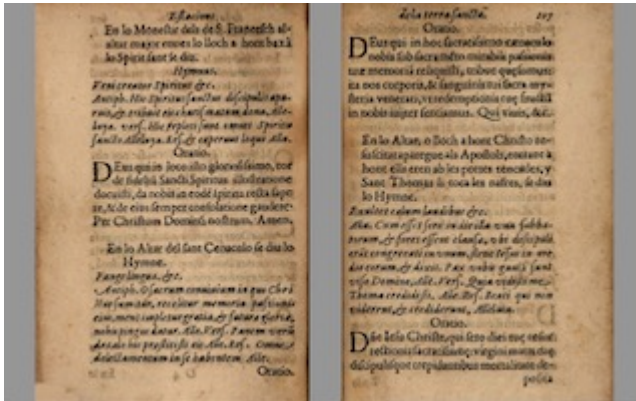 Estacions
En lo Monestir dels de S. Francesch al
altar major en es lo lloch a hont baxà
lo Spirit sant se diu.
Hymnus.
Veni creator Spiritus &c.
Antiph. Hic Spiritus sanctus discipulis apa-
ruit, & tribuit eis charismatum dona, Alle-
luya. vers. Hic repleti sunt omnes Spiritu
sancto Alleluya. Res. & ceperunt loqui Alla.
Oratio.
DEus qui in loco isto gloriosissimo, cor
da fidelium Sancti Spiritus illustratione
docuisti, da nobis in eodē spiritu recta sape
re, & de eius semper consolatione gaudere.
Per Christum Dominū nostrum. Amen.
En lo Altar del sant Cenacolo se diu lo
Hymne.
Pange lingua, &c.
Antiph. O sacrum convivium in quo Chri
stus sumitur, recolitur memoria passionis
eius, mens impletur gratia, & futuræ gloriæ
nobis pignus datur. Alle. Vers. Panem
de cælo præstitisti eis Alle. Res. Omne
delectamentum in se habentem Alle.
Oratio.
de la terra sancta. 107
Oratio.
DEus qui in hoc sacratissimo cœnaculo
nobis sub sacramento mirabili passionis
tuæ memoriā reliquisti, tribue quæsumus
nos corporis, & sanguinis tui sacra my-
steria venerari, ut redemptionis tuæ fructū
in nobis iugiter sentiamus. Qui vivis, &c.
En lo Altar, o lloch a hont Christo re-
suscitat aparegue als Apostols, entrant a
hont ells eren ab les portes tencades, y
Sant Thomas li toca les nafres, se diu
lo Hymne.
Exultet cælum laudibus &c.
Aña. Cum esset sero in illa una sabba-
torum, & fores essent clausæ, ubi discipuli
erāt congregati in unum, stetit Iesus in me-
dio eorum, & dixit. Pax vobis gavisi sunt
viso Domino, Alle. Vers. Quia vidisti me
Thoma credidisti, Alle. Res. Beati qui non
viderunt, & crediderunt, Alleluia.
Oratio.
Dñe Iesu Christe, qui sero die tuæ
resurrectionis sacratissimæ, virgini matri
discipulisque trepidantibus mortalitate de-
posita